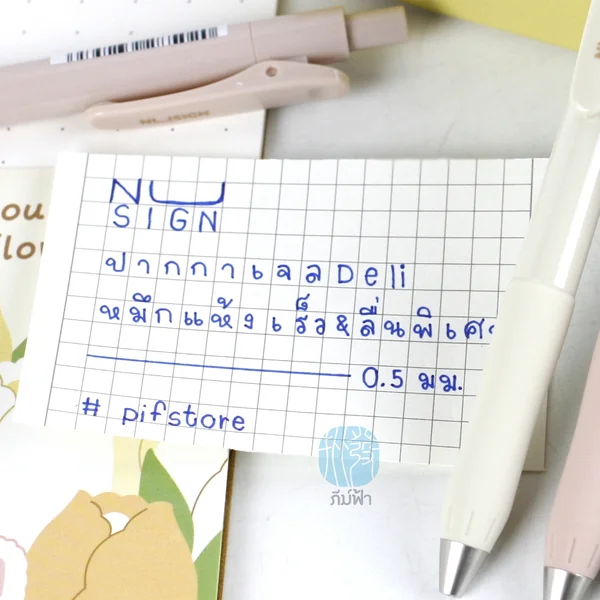 NUSIGN
ou
flow
NU
SIGN
ปากกาเจลDeli
หมึกแห้งเร็ว&ลื่นพิเศ
0.5 มม.
# pifstore
ภีม์ฟ้า